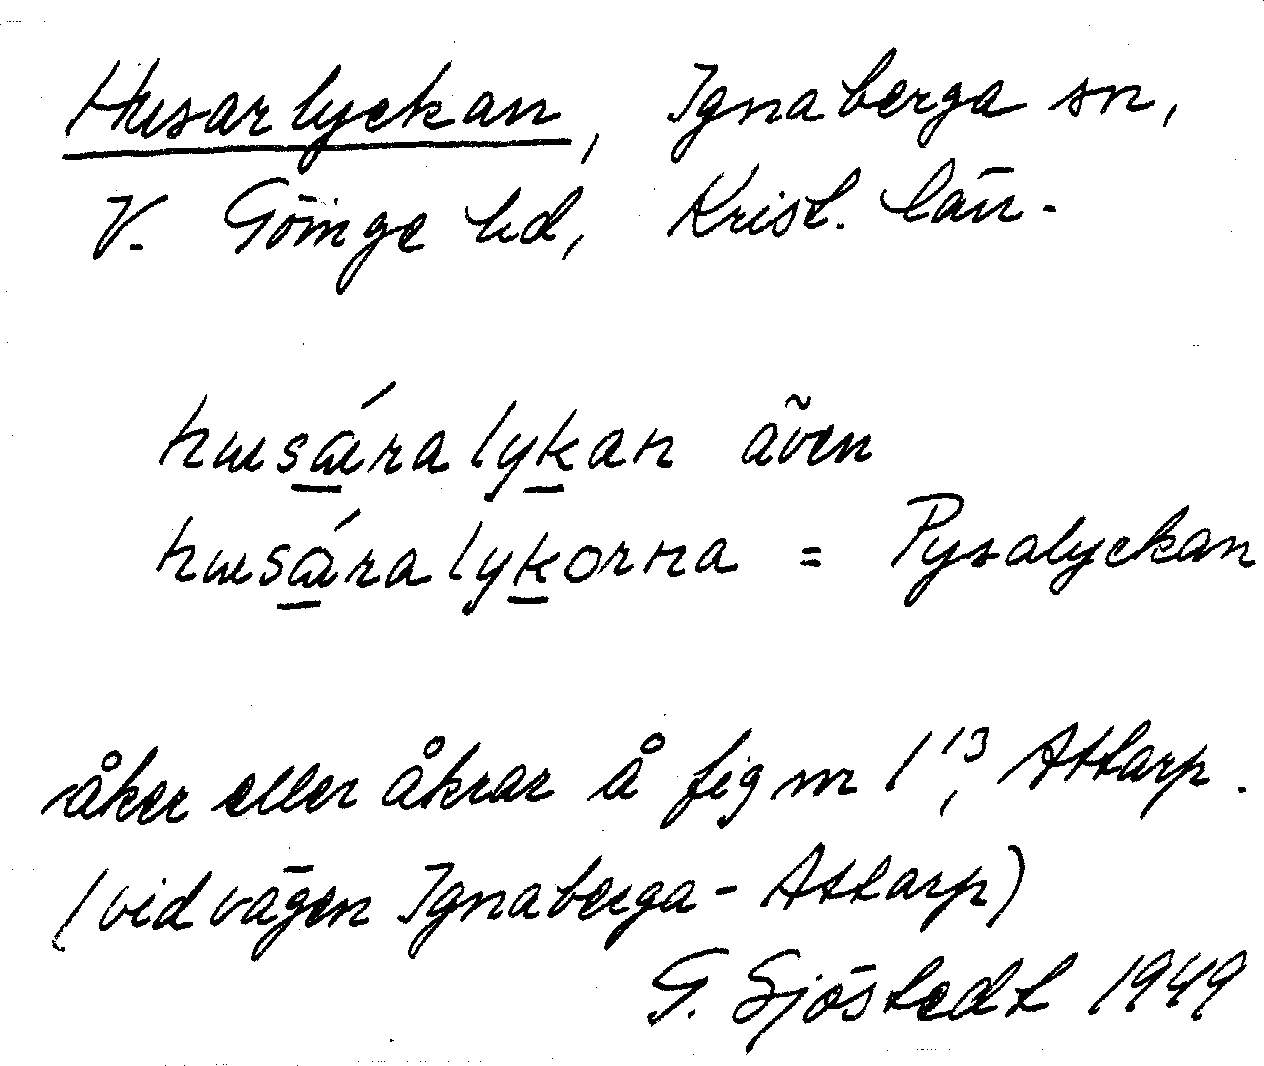 Husarlyckan, Ignaberga sn,
V. Göinge hd, Krist. län.
husáralykan även
husáralykorna = Pysalyckan
åker eller åkrar å fig nr 1¹³, Attarp.
(vid vägen Ignaberga - Attarp)
G. Sjöstedt 1949